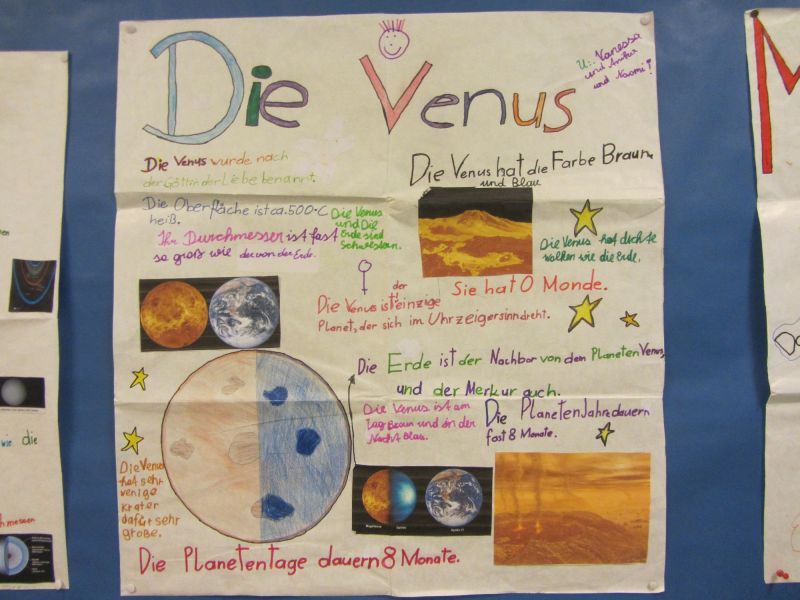 Die Venus
U.: Vanessa
und
und Naomi!
Die Venus wurde nach
der Göttin der Liebe benannt.
Die Venus hat die Farbe Braun
und Blau
Die Oberfläche ist ca. 500°C
heiß.
Die Venus
und Die
Erde sind
Schwestern.
Ihr Durchmesser ist fast
so groß wie der von der Erde.
Die Venus hat dichte
Wolken wie die Erde.
Sie hat 0 Monde.
Die Venus ist der einzige
Planet, der sich im Uhrzeigersinn dreht.
Die Erde ist der Nachbar von dem Planeten Venus,
und der Merkur auch.
Die Venus ist am
Tag Braun und in der
Nacht Blau.
Die Planeten Jahr dauern
fast 8 Monate.
Die Venus
hat sehr
wenige
Krater
dafür sehr
große.
Die Planetentage dauern 8 Monate.
wie die
M